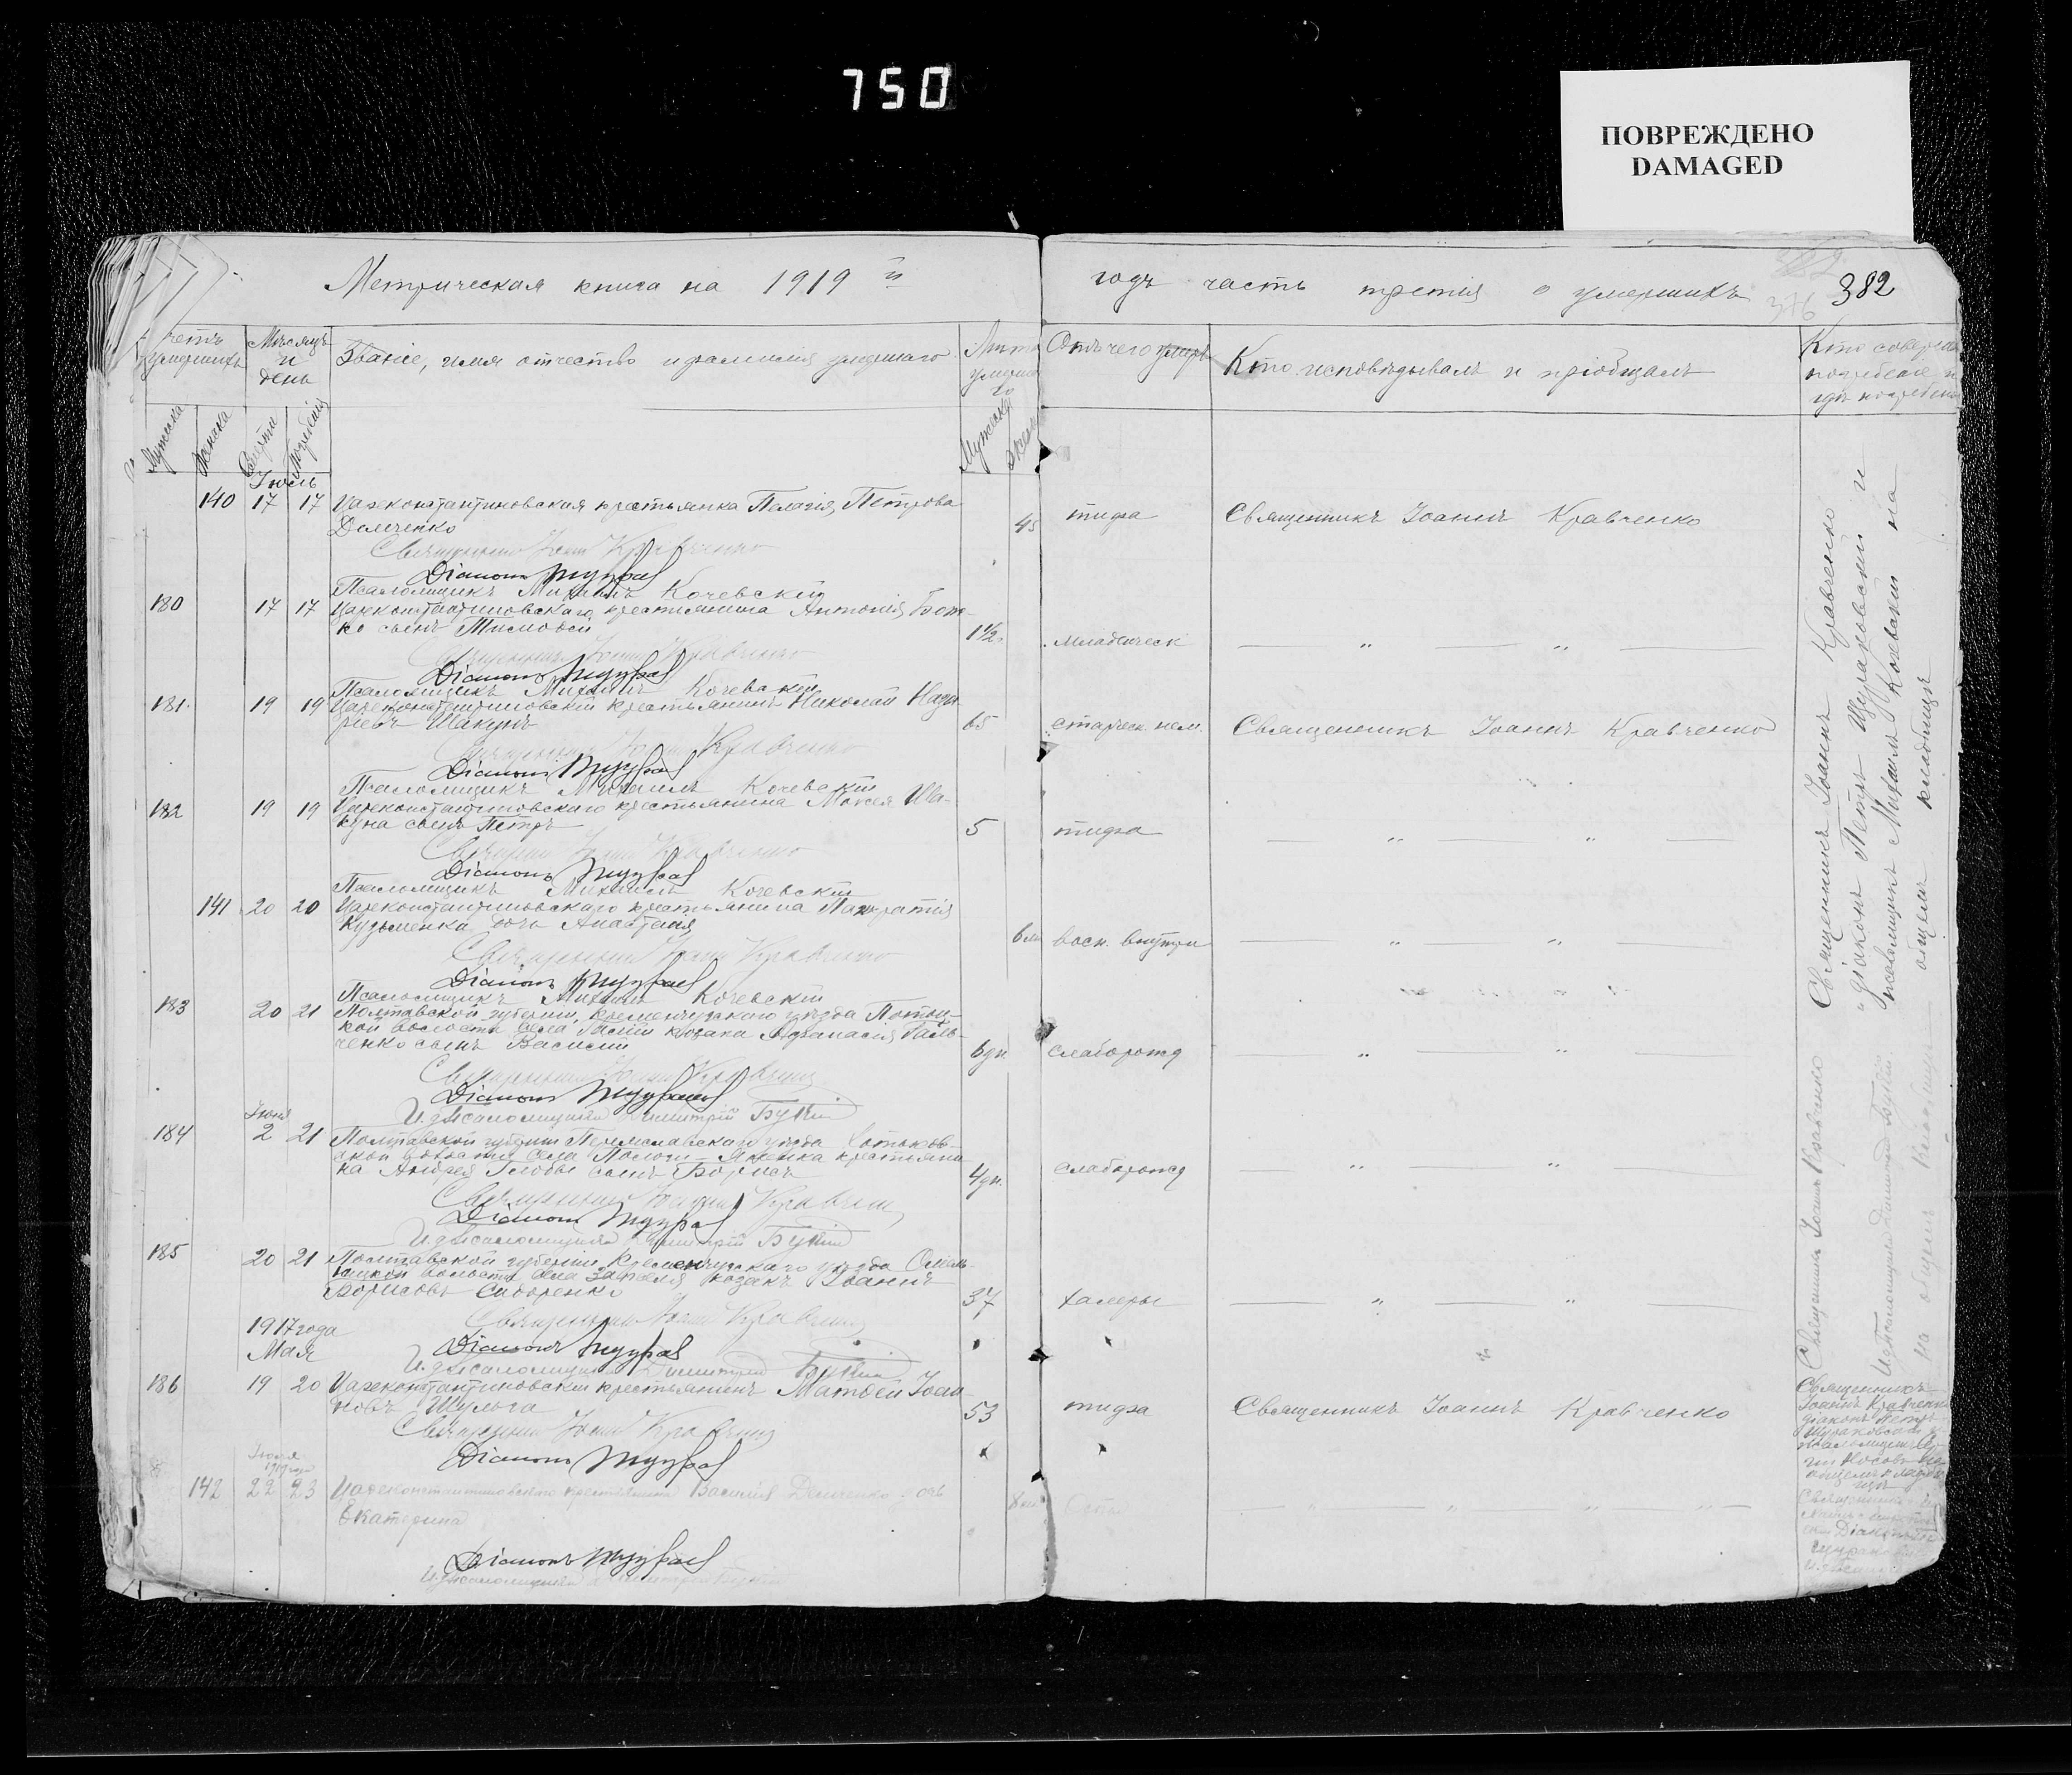 750
ПОВРЕЖДЕНО
DAMAGED
Метрическая книга на 1919 й
годъ часть третія о умершихъ
382
376
Счетъ умершихъ
Мѣсяцъ и день
Званіе, имя отчество и фамилія умершаго
Лѣта умерша го
Отъ чего умеръ
Кто исповѣдывалъ и пріобщалъ
Кто совершалъ погребеніе и гдѣ погребены
Мужска
Женска
Смерти
Погребенія
Мужска
Женска
Іюль
140 17 17 Цареконстантиновская крестьянка Пелагія Петрова
Демченко
45 тифа Священникъ Іоаннъ Кравченко
Священникъ Іоаннъ Кравченко
Діаконъ
Псаломщикъ Михаилъ Кочевскій
180 17 17 Цареконстантиновскаго крестьянина Антонія Бот-
ко сынъ Тимофей
1½ младенческ — „ — „ —
Священникъ Іоаннъ Кравченко
Діаконъ
Псаломщикъ Михаилъ Кочевскій
181 19 19 Цареконстантиновскій крестьянинъ Николай Наза-
ріевъ Шакунъ
65 старческ. нем. Священникъ Іоаннъ Кравченко
Священникъ Іоаннъ Кравченко
Діаконъ
Псаломщикъ Михаилъ Кочевскій
182 19 19 Цареконстантиновскаго крестьянина Моисея Ша-
куна сынъ Петръ
5 тифа — „ — „ —
Священникъ Іоаннъ Кравченко
Діаконъ
Псаломщикъ Михаилъ Кочевскій
141 20 20 Цареконстантиновскаго крестьянина Панкратія
Кузьменка дочь Анастасія
6 м восп. внутри — „ — „ —
Священникъ Іоаннъ Кравченко
Діаконъ
Псаломщикъ Михаилъ Кочевскій
183 20 21 Полтавской губерніи, Кременчугскаго уѣзда Поточ-
кой волости села козака Афанасія Галь-
ченко сынъ Василій
6 дн. слаборожд — „ — „ —
Священникъ Іоаннъ Кравченко
Діаконъ
И. д. псаломщика Димитрій Букій
Іюня
184 2 21 Полтавской губерніи Переяславскаго уѣзда
ской волости села Пологи-Яненка крестьяни-
на Андрея Глобы сынъ Борисъ
4 дн. слаборожд — „ — „ —
Священникъ Іоаннъ Кравченко
Діаконъ
И. д. псаломщика Димитрій Букій
185 20 21 Полтавской губерніи Кременчугскаго уѣзда Омель-
ницкой волости села козакъ Іоаннъ
Борисовъ Сидоренко
37 холеры — „ — „ —
Священникъ Іоаннъ Кравченко
Діаконъ
И. д. псаломщика Димитрій Букій
1917 года
Мая
186 19 20 Цареконстантиновскій крестьянинъ Матвѣй Іоан-
новъ Шульга
53 тифа Священникъ Іоаннъ Кравченко
Священникъ Іоаннъ Кравченко
Діаконъ
Іюля
1919 года
142 22 23 Цареконстантиновскаго крестьянина Василія Демченко дочь
Екатерина
8 м. — „ — „ — „ —
Діаконъ
И. д. псаломщика Димитрій Букій
Священникъ Іоаннъ Кравченко
діаконъ Петръ Щураковскій и
псаломщикъ Михаилъ Кочевскій на
общемъ кладбищѣ
Священникъ Іоаннъ Кравченко
И. д. псаломщика Димитрій Букій
на общемъ кладбищѣ
Священникъ
Іоаннъ Кравченко
діаконъ Петръ
Щураковскій и
псаломщикъ
Носовъ на
общемъ кладби-
щѣ
Священникъ
Діаконъ